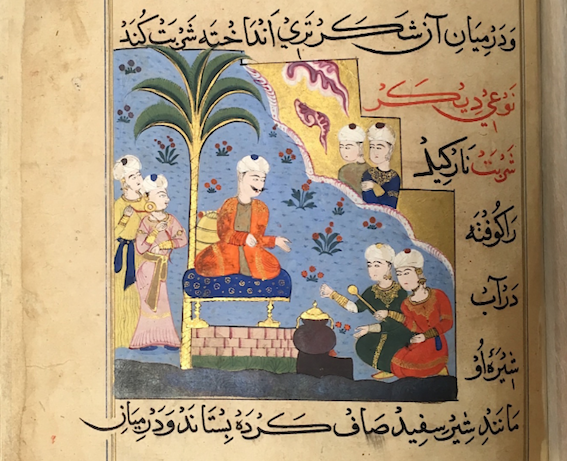 و در میان آن شکر تری انداخته شربت کند
نوعی دیکر
شربت نارکیل
را کوفته
در آب
شیرهٔ او
مانند شیر سفید صاف کرده بستاند و در میان